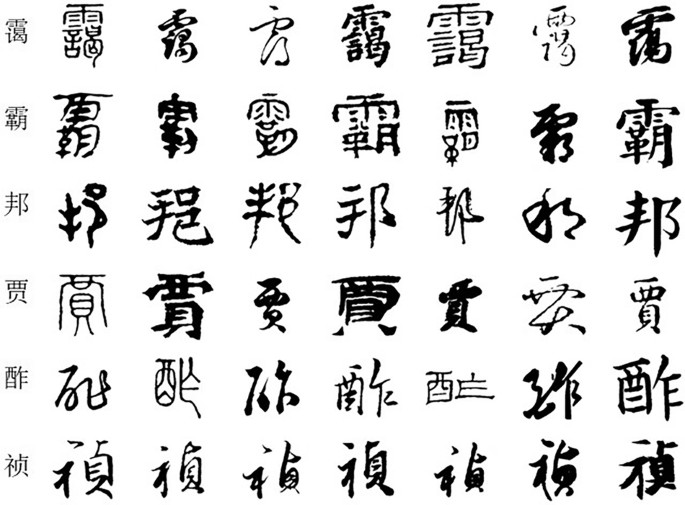 霭 靄 靄 靄 靄 靄 靄 靄
霸 霸 霸 霸 霸 霸 霸 霸
邦 邦 邦 邦 邦 邦 邦 邦
贾 賈 賈 賈 賈 賈 賈 賈
酢 酢 酢 酢 酢 酢 酢 酢
祯 禎 禎 禎 禎 禎 禎 禎